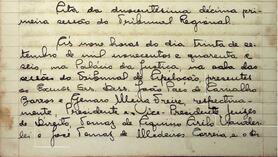 Ata da ducentésima décima pri-
meira sessão do Tribunal Regional.
Às nove horas do dia trinta de se-
tembro de mil novecentos e quarenta e
seis, no Palácio da Justiça, na sala das
sessões do Tribunal de Apelação, presentes
os Exmos. Srs. Drs. João Paes de Carvalho
Barros e Genaro Freire, respectiva-
mente Presidente e Vice-Presidente, Juízes
de Direito, Tomaz de Cirilo
lei e José Tomaz de Medeiros Correia, e o Dr.